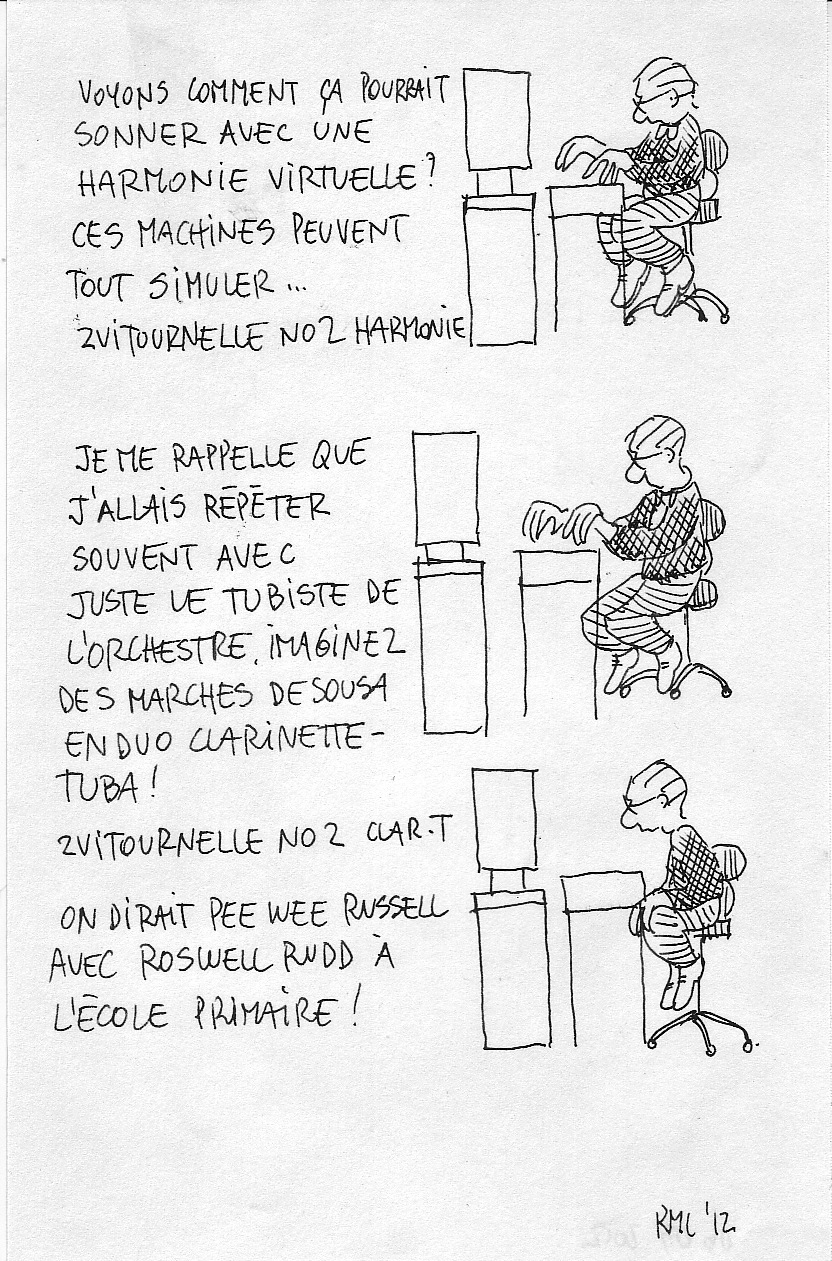 VOYONS COMMENT ÇA POURRAIT
SONNER AVEC UNE
HARMONIE VIRTUELLE?
CES MACHINES PEUVENT
TOUT SIMULER...
2VITOURNELLE NO2 HARMONIE
JE ME RAPPELLE QUE
J'ALLAIS RÉPÉTER
SOUVENT AVEC
JUSTE LE TUBISTE DE
L'ORCHESTRE. IMAGINEZ
DES MARCHES DE SOUSA
EN DUO CLARINETTE-
TUBA!
2VITOURNELLE NO2 CLAR.T
ON DIRAIT PEE WEE RUSSELL
AVEC ROSWELL RUDD À
L'ÉCOLE PRIMAIRE!
RML '12